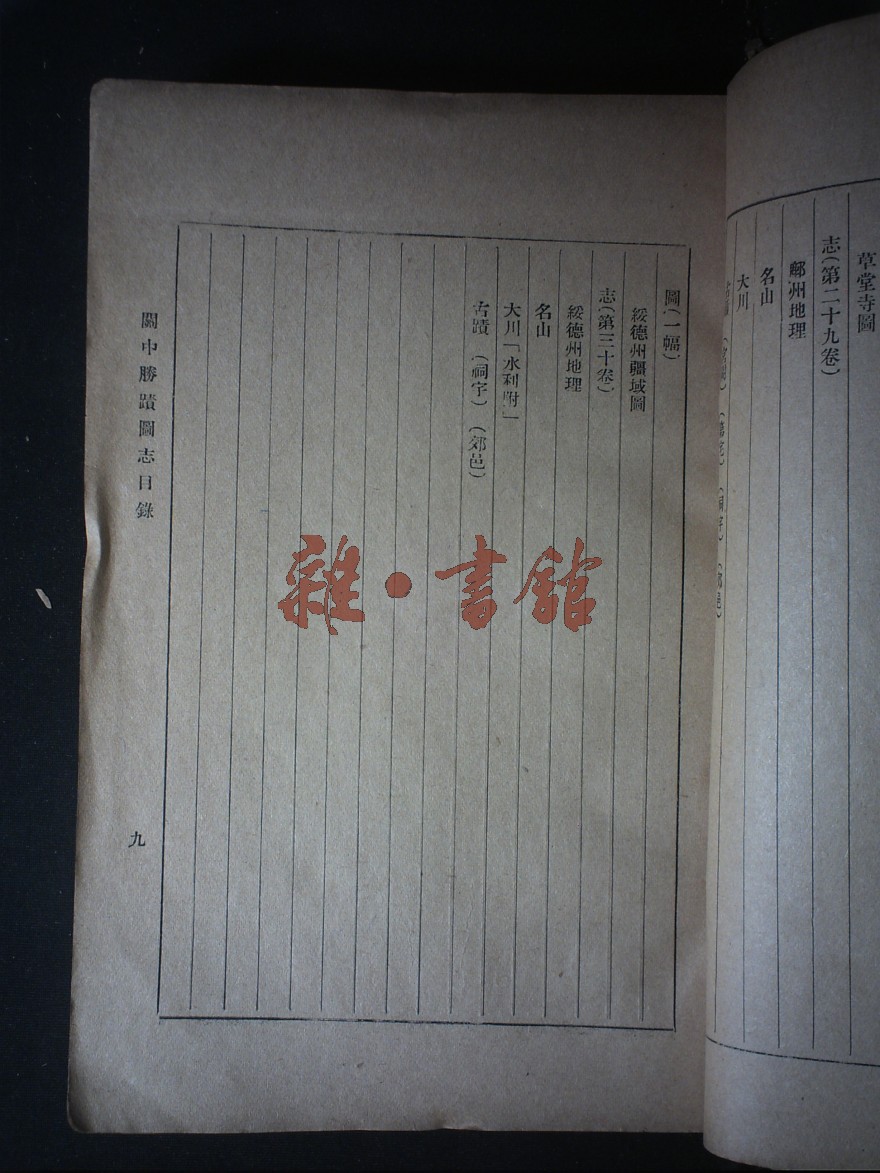 草堂寺圖
志(第二十九卷)
鄜州地理
名山
大川
圖(一幅)
綏德州疆域圖
志(第三十卷)
綏德州地理
名山
大川「水利附」
古蹟 (祠宇) (郊邑)
關中勝蹟圖志目錄
九
雜·書館